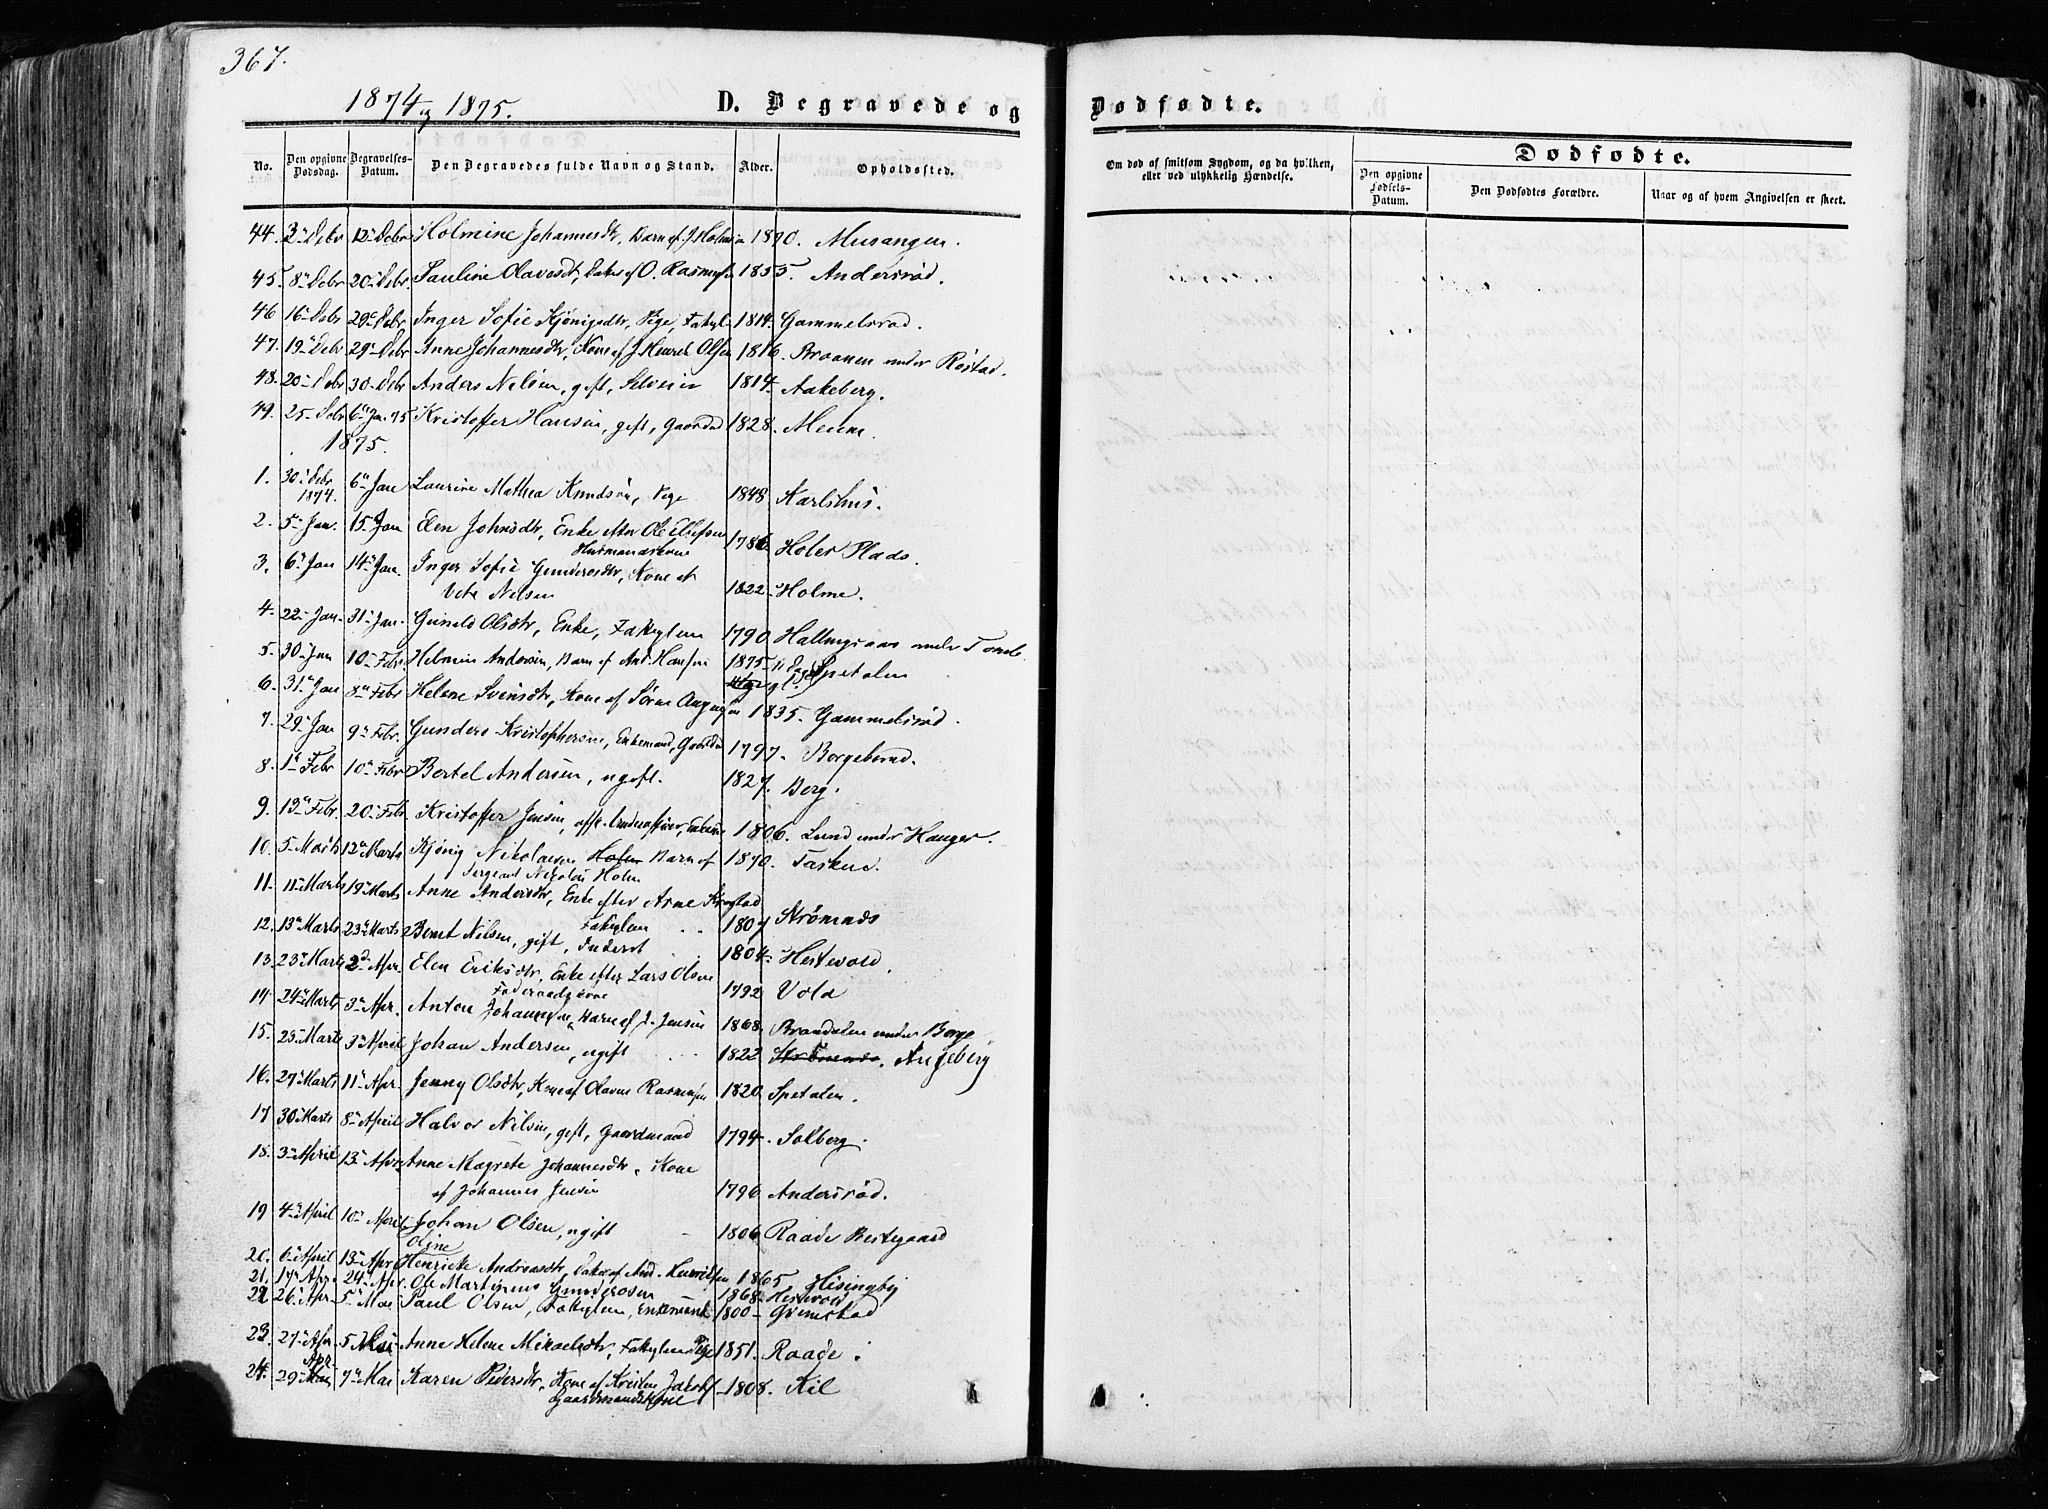 367.
1874 og 1875.
D. Begravede og
Dødfødte.
No.
Den opgivne Dødsdag.
Begravelses-Datum.
Den Begravedes fulde Navn og Stand.
Alder.
Opholdssted.
Om død af smitsom Sygdom, og da hvilken, eller ved ulykkelig Hændelse.
Dødfødte.
Den opgivne Fødsels-Datum.
Den Dødfødtes Forældre.
Naar og af hvem Angivelsen er skeet.
44. 3. Debr 12. Debr Holmine Johannesdtr, Barn af J. 1870.
45. 8. Debr 20. Debr. Pauline Olavesdtr, Datter af O. Rasmussen 1855. Andersrød.
46 16. Debr 29. Debr. Inger Sofie Kjönigsdtr, Pige, Fatigl. 1814. Gammelsrød.
47. 19. Debr 29. Debr Anne Johannesdtr, Kone af J. Henrik Olsen 1816. Braanen under Röstad.
48. 20. Debr 30. Debr Anders Nilsen, gift, Selveier 1814. Aakeberg.
49. 25. Debr 6. Jan. 75 Kristoffer Hansen, gift, Gaardm 1828.
1875.
1. 30. Debr 1874. 6. Jan Laurine Mathea Knudsen, Pige 1848 Karlshus.
2. 5. Jan. 15. Jan Elen Johnsdtr, Enke efter Ole Ellefsen 1786 Holer Plads.
Husmandskone
3. 6. Jan 14. Jan. Inger Sofie Gunderosdtr, Kone af
Nilsen 1822. Holme.
4. 22. Jan. 31. Jan. Gunild Olsdtr, Enke, Fatiglem 1790 under Tomb.
5. 30. Jan 10. Febr. Helmin Andersen, Barn af And. Hansen 1875 Spetalen
6. 31. Jan 8. Febr Helene Svensdtr, Kone af Sören 1835. Gammelsrød.
7. 29. Jan 9. Febr. Gundero Kristophersen, Enkemand, Gaardm 1797. Borgebund.
8. 1. Febr 10. Febr Bertel Andersen, ugift. 1827. Berg.
9. 13. Febr. 20. Febr Kristoffer Jensen, 1806. Lund under Hauger.
10. 5. Marts 12. Marts Kjönig Nikolaisen Holm Barn af 1870. Tasken.
Sergeant Nicolai Holm
11. 11. Marts 19. Marts Anne Andersdtr, Enke efter Arne Krogstad
Fatiglem 1807 Strömnes
12. 13. Marts 23. Marts Bernt Nilsen, gift, Inderst 1804. Hestevold.
13. 23. Marts 2. Apr. Elen Eriksdtr, Enke efter Lars Olsen 1792 Vold
Föderaadskone
14 24. Marts 3. Apr. Anton Johannesen, Barn af J. Jensen 1868. Brandalen under Borge
15. 25. Marts 3. April Johan Andersen, ugift 1822 Strömnes. Augeberg
16. 27. Marts 11. Apr. Jenny Olsdtr, Kone af Olaves Rasmussen 1820 Spetalen.
17 30. Marts 8. April Halvor Nilsen, gift, Gaardmand 1794. Solberg.
18. 3. April 13. Apr. Anne Magrete Johannesdtr, Kone
af Johannes Jensen 1796 Andersrød.
19 4. April 10. April Johan Olsen, ugift 1806 Raade Prestegaard
Oline
20. 6. April 13. Apr Henrikke Andreasdtr, Datter af And. 1865 Hisingby
21. 17. Apr. 24. Apr. Ole Martinius Gunderosen 1868. Hestevold
22 26. Apr 5. Mai Paul Olsen, Fatiglem, Enkemand 1800 Grimstad
23. 27. Apr 5 Mai Anne Helene Mikaelsdtr, Fatiglem Pige 1851. Raade.
Apr
24. 29 Mai 7. Mai Karen Pedersdtr, Kone af Kristen Jakobs. 1808. Kil
Gaardmandskone